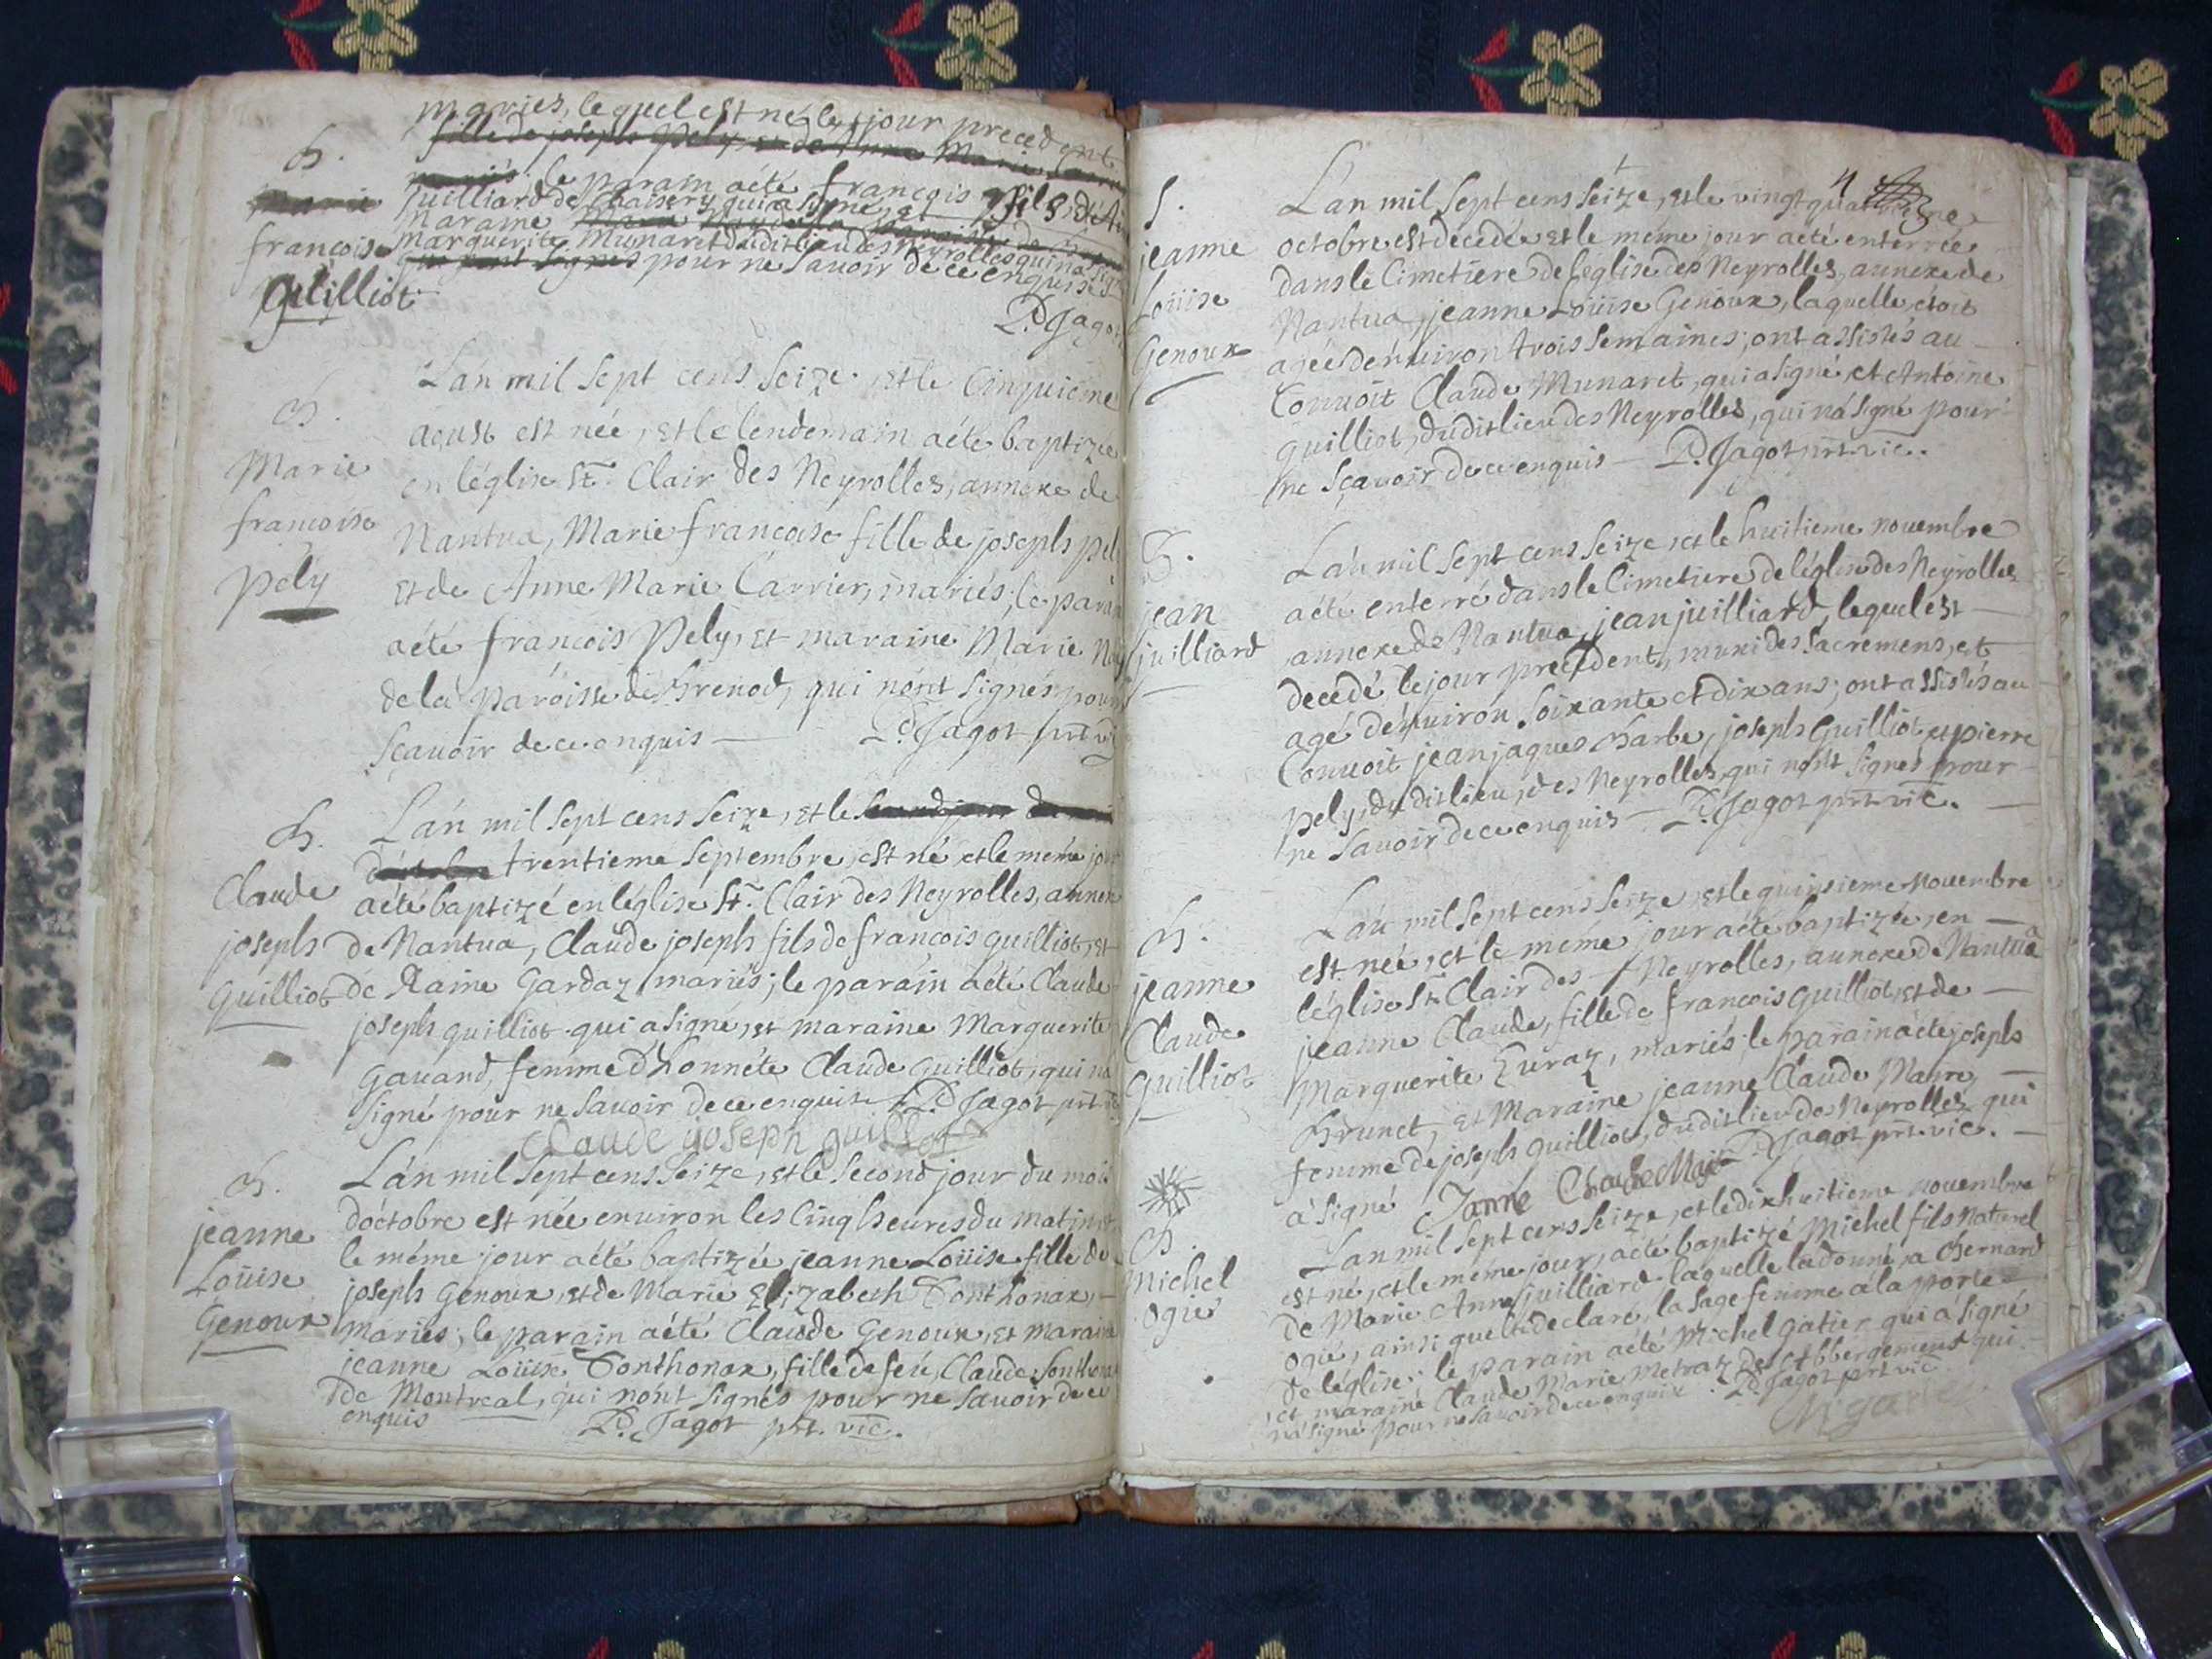 mariés, lequel est né le jour precedent
fille de joseph Pely, et de Anne Marie
mariés; le parain aété françois fils
juilliard de Chaisery qui a signé, et
maraine
Marguerite Munaret dudit lieu des Neyrolles qui n'a
pour ne savoir de ce enquise
P.d Jagot
B.
Marie
françois
Guilliot
L'an mil sept cens seize, et le cinquiéme
aoust est née, et le lendemain aété baptizée
en léglise St. Clair des Neyrolles, annexe de
Nantua, Marie françoise fille de joseph pely
et de Anne Marie Carrier, mariés; le parain
aété françois Pely, et maraine Marie
de la paroisse de Brenod, qui n'ont signés pour
sçavoir de ce enquis — P.d Jagot prt. vic
B.
Marie
françoise
pely
L'an mil sept cens seize, et le
trentieme septembre, est né et le méme jour
aété baptizé en léglise St. Clair des Neyrolles, annexe
de Nantua, Claude joseph fils de françois guilliot, et
de Raine Gardaz mariés; le parain aété Claude
joseph guilliot qui a signé, et maraine Marguerite
Gavand, femme d'honnéte Claude Guilliot, qui n'a
signé pour ne savoir de ce enquise P.d Jagot prt. vic
Claude joseph guilliot
B.
Claude
joseph
Guilliot
L'an mil sept cens seize, et le second jour du mois
d'octobre est née environ les cinq heures du matin et
le méme jour aété baptizée jeanne Loüise fille de
joseph Genoux, et de Marie Elizabeth Sonthonax,
mariés; le parain aété Claude Genoux, et maraine
jeanne Loüise Sonthonax, fille de feu Claude Sonthonax
de Montreal, qui n'ont signés pour ne savoir de ce
enquis P.d Jagot prt. vic.
B.
jeanne
Loüise
Genoux
4
L'an mil sept cens seize, et le vingt quatriéme
octobre est decedée et le méme jour aété enterrée
dans le Cimetiere de l'eglise des Neyrolles, annexe de
Nantua, jeanne Loüise Genoux, laquelle étoit
agée d'environ trois semaines; ont assistés au
Convoit Claude Munaret, qui a signé, et Antoine
guilliot, dudit lieu des Neyrolles, qui n'a signé pour
ne sçavoir de ce enquis — P.d Jagot prt. vic.
S.
jeanne
Loüise
Genoux
L'an mil sept cens seize, et le huitieme novembre
aété enterré dans le Cimetiere de léglise des Neyrolles
annexe de Nantua, jean juilliard, lequel est
decedé le jour precedent, muni des sacremens, et
agé d'environ soixante et dix ans; ont assistés au
Convoit jean jaques Barbe, joseph Guilliot, et pierre
pely, dudit lieu, des Neyrolles, qui n'ont signés pour
ne savoir de ce enquis — P.d Jagot prt. vic.
S.
jean
juilliard
L'an mil sept cens seize, et le quinsieme novembre
est née, et le méme jour aété baptizée, en
léglise St. Clair des Neyrolles, annexe de Nantua
jeanne Claude, fille de françois Guilliot, et de
Marguerite Zuraz, mariés; le parain aété joseph
Brunet, et Maraine jeanne Claude Maire,
femme de joseph guilliot, dudit lieu des Neyrolles, qui
a signé P.d Jagot prt. vic.
Janne Claude Maire
B.
jeanne
Claude
Guilliot
L'an mil sept cens seize, et le dixhuitieme novembre
est né, et le méme jour, aété baptizé Michel fils naturel
de Marie Anne juilliard laquelle l'a donné, a Bernard
Ogié, ainsi que l'a declaré, la sage femme a la porte
de léglise; le parain aété Michel gatier qui a signé
et maraine Claude Marie Metraz des Abbergemens qui
n'a signé pour ne savoir de ce enquise. P.d Jagot prt vic
B.
Michel
Ogié